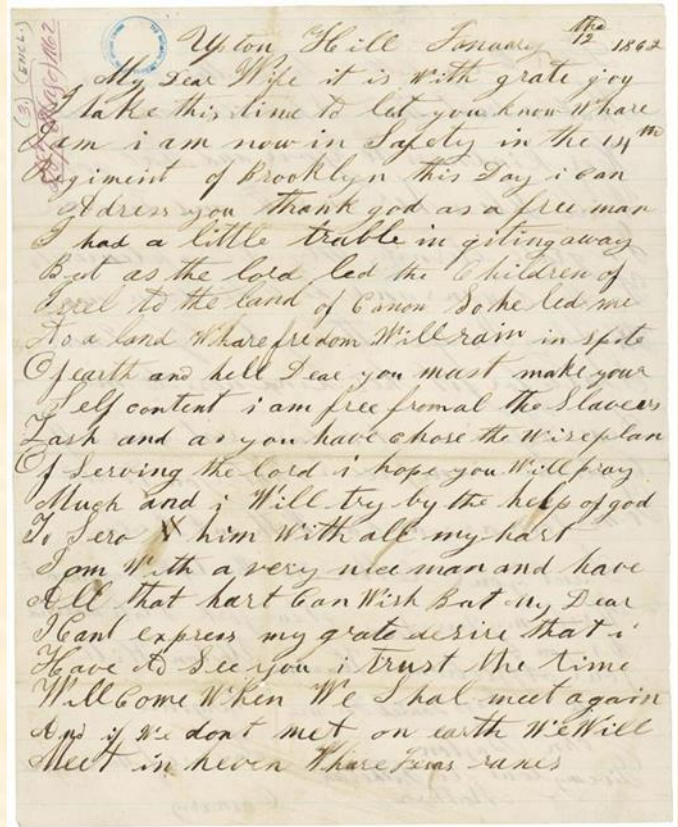 Upton Hill January the 12 1862
My Dear Wife it is with grate joy
I take this time to let you know Whare
I am i am now in Safety in the 14th
Regiment of Brooklyn this Day i can
Adress you thank god as a free man
I had a little truble in giting away
But as the lord led the Children of
Isrel to the land of Canon So he led me
to a land Whare fredom Will rain in spite
Of earth and hell Dear you must make your
Self content i am free from al the Slavers
Lash and as you have chose the Wise plan
Of Serving the lord i hope you Will pray
Much and i Will try by the help of god
To Serv him With all my hart
I am With a very nice man and have
All that hart Can Wish But My Dear
I Cant express my grate desire that i
Have to See you i trust the time
Will Come When We Shal meet again
And if We dont met on earth We Will
Meet in heven Whare Jesas ranes
(3) (ENCL.)